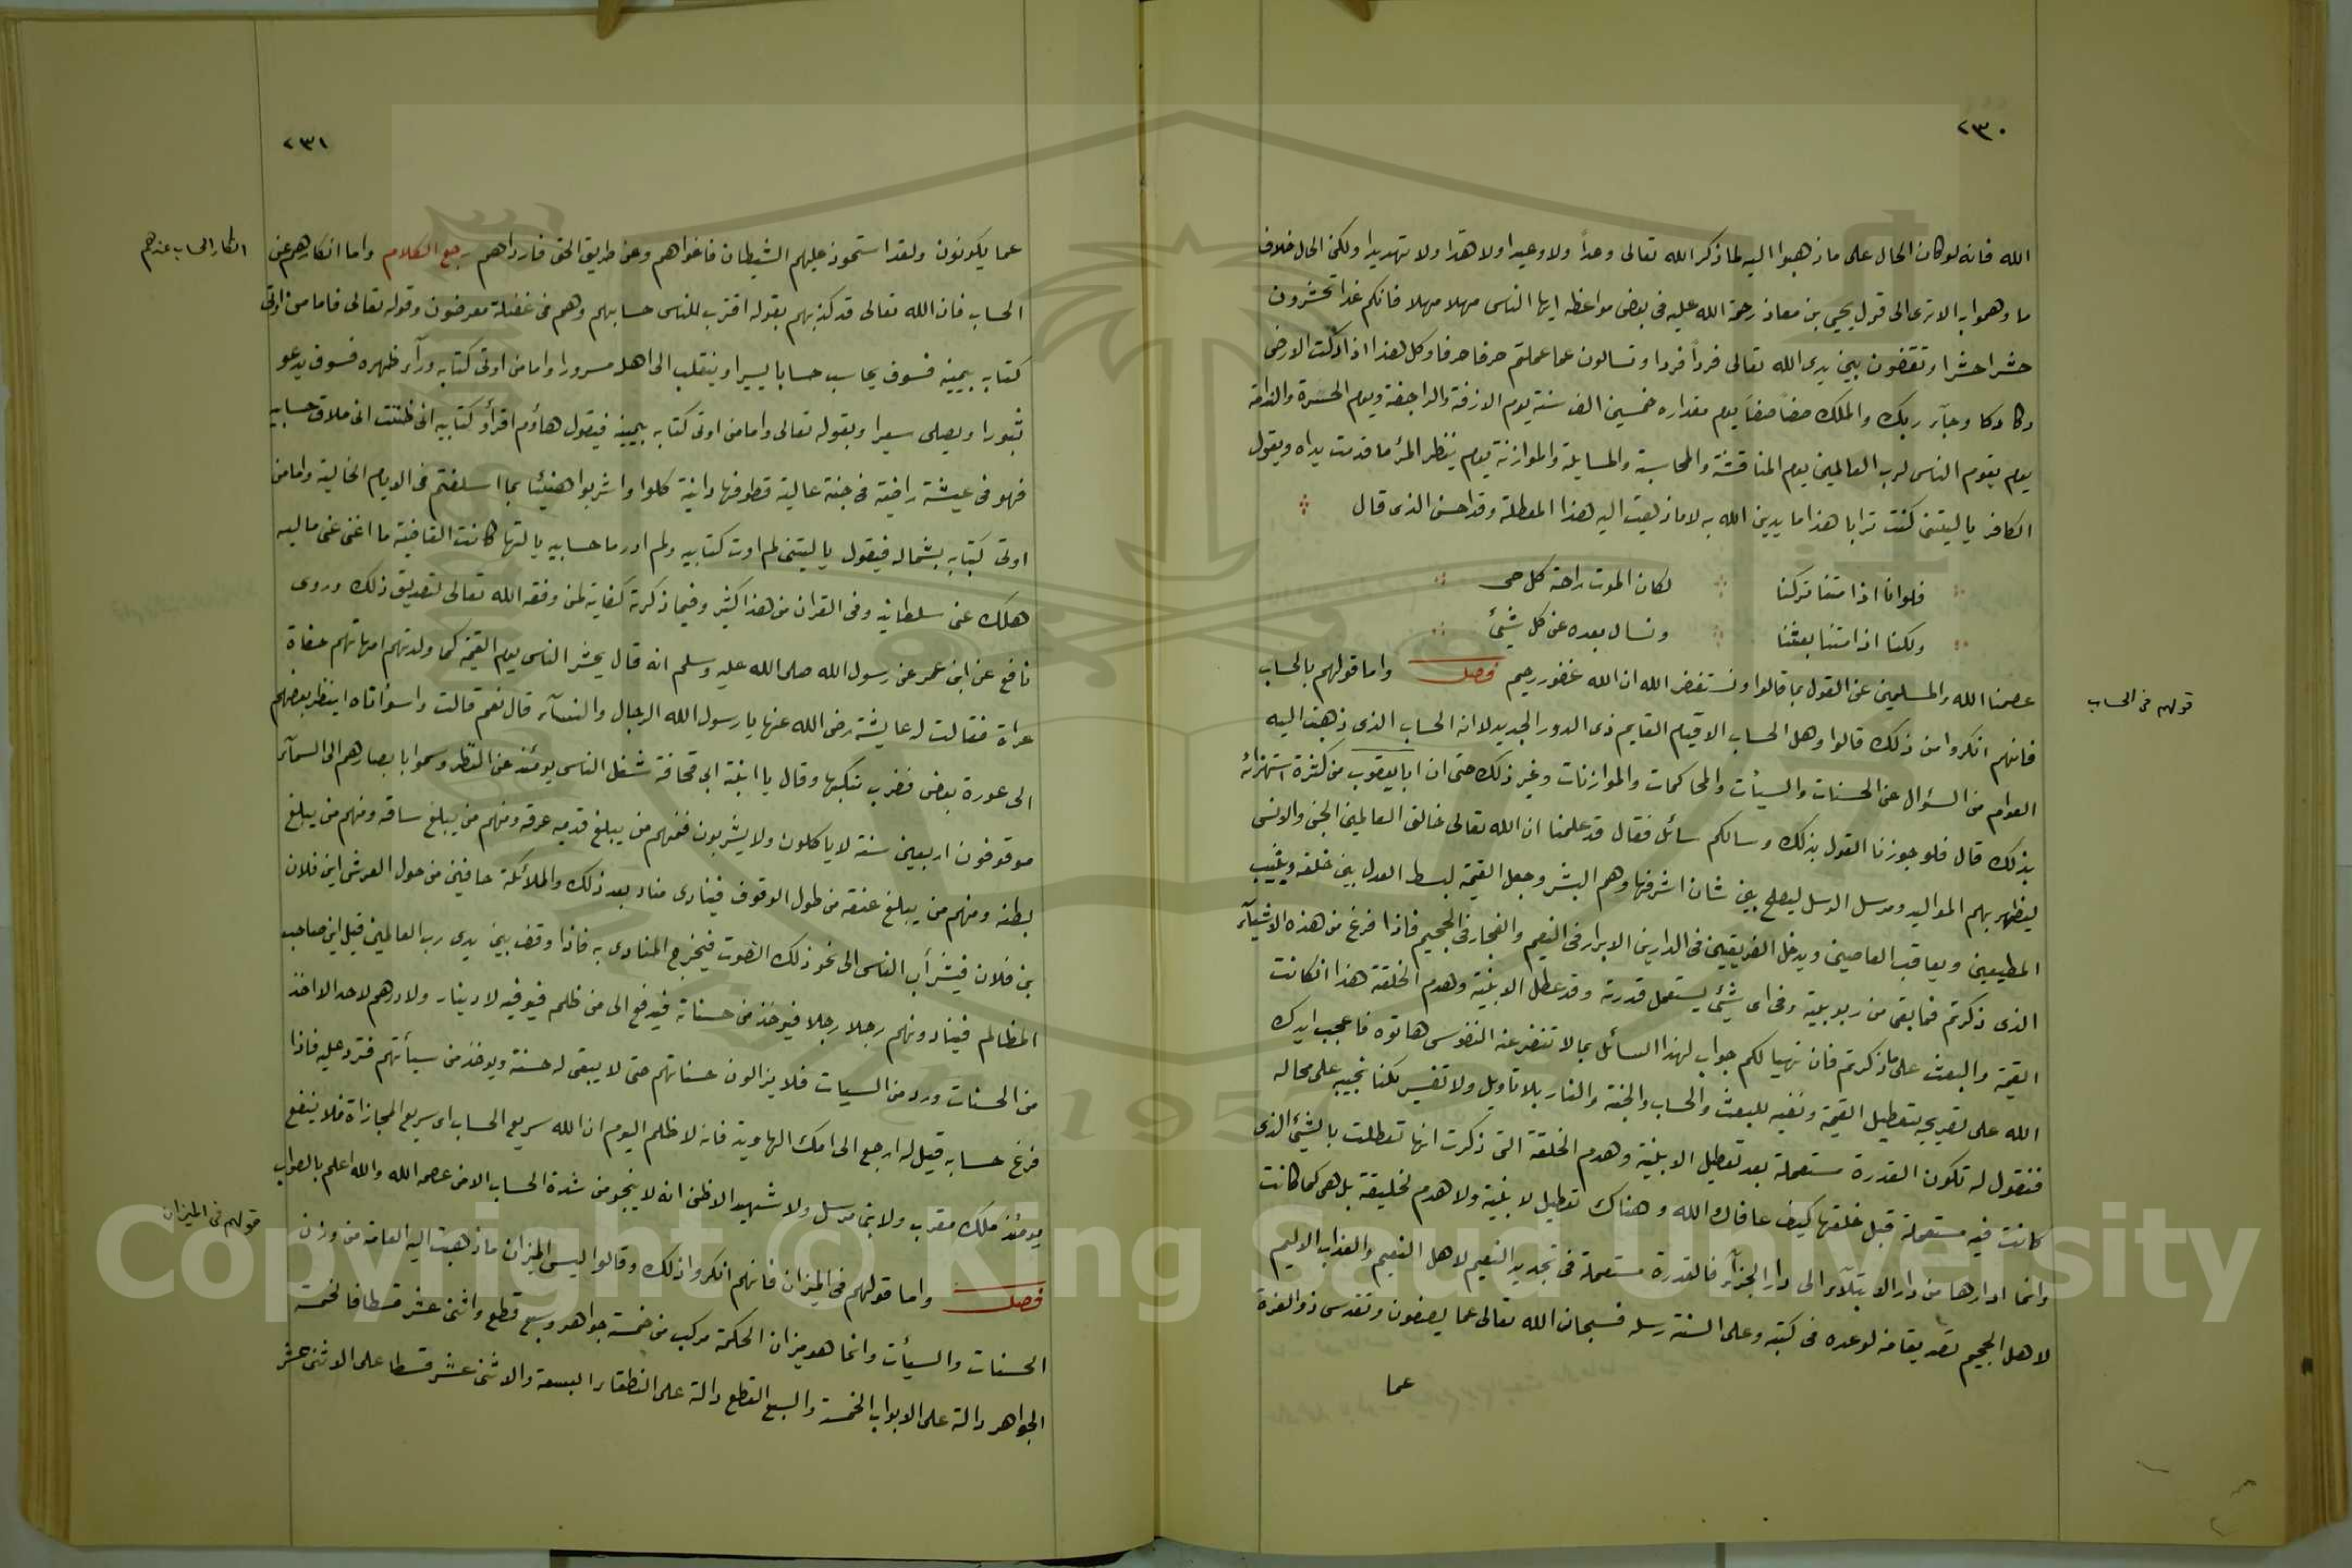 ٢٣٠
الله فانه لو كان الحال على ما ذهبوا اليه لما ذكر الله تعالى وعداً ولا وعيدا ولا هددا ولا تهديدا ولكن الحال خلاف
ما وهموا به الا ترى الى قول يحيى بن معاذ رحمة الله عليه فى بعض مواعظه ايها الناس مهلا مهلا فانكم غدا تحشرون
حشرا حشرا وتقفون بين يدى الله تعالى فرداً فردا وتسالون عما عملتم حرفا حرفا وكل هذا اذا دكت الارض
دكا دكا وجآء ربك والملك صفاً صفاً يوم مقداره خمسين الف سنة يوم الازفة والراجفة ويوم الحسرة والندامة
يوم يقوم الناس لرب العالمين يوم المناقشة والمحاسبة والمسايلة والموازنة يوم ينظر المرٔ ما قدمت يداه ويقول
الكافر يا ليتنى كنت ترابا هذا ما يدين الله به لا ما ذهبت اليه هذا المعطلة وقد احسن الذى قال
فلو انا اذا متنا تركنا لكان الموت راحة كل حى
ولكنا اذا متنا بعثنا ونسال بعده عن كل شئ
عصمنا الله والمسلمين عن القول بما قالوا ونستغفر الله ان الله غفور رحيم فصل واما قولهم بالحساب
قولهم فى الحساب
فانهم انكروا من ذلك قالوا وهل الحساب الا قيام القايم ذى الدور الجديد لانه الحساب الذى ذهبت اليه
العوام من السؤال عن الحسنات والسيأت والمحاكمات والموازنات وغير ذلك حتى ان ابا يعقوب من كثرة استهزائه
بذلك قال فلو جوزنا القول بذلك وسالكم سائل فقال قد علمنا ان الله تعالى خالق العالمين الجن والانس
ليظهر بهم المواليد ومرسل الرسل ليصلح بين شان اشرفها وهم البشر وجعل القيمة لبسط العدل بين خلقه ويثيب
المطيعين ويعاقب العاصين ويدخل الفريقين فى الدارين الابرار فى النعيم والفجار فى الجحيم فاذا فرغ من هذه الاشيآء
الذى ذكرتم فما بقى من ربوبيته وفى اى شئ يستعمل قدرته وقد عطل الابنية وهدم الخلقة هذا ان كانت
القيمة والبعث على ما ذكرتم فان تهيا لكم جواب لهذا السائل بما لا تنفر عنه النفوس هاتوه فاعجب ايدك
الله على تصريحه بتعطيل القيمة ونفيه للبعث والحساب والجنة والنار بلا تاويل ولا تفسير لكنا نجيبه على محاله
فنقول له تكون القدرة مستعملة بعد تعطيل الابنية وهدم الخلقة التى ذكرت انها تعطلت بالشئ الذى
كانت فيه مستعملة قبل خلقها كيف عافاك الله وهناك تعطيل لابنية ولا هدم لخليقة بل هى كما كانت
وانما ادارها من دار الابتلآء الى دار الجزآء فالقدرة مستعملة فى تجديد النعيم لاهل النعيم والعذاب الاليم
لاهل الجحيم تصديقا منه لوعده فى كتبه وعلى السنة رسله فسبحان الله تعالى عما يصفون وتقدس ذو العزة
عما
٢٣١
عما يكونون ولقد استحوذ عليهم الشيطان فاغواهم وعن طريق الحق فارداهم رجع الكلام واما انكارهم عن
انكار الحساب عندهم
الحساب فان الله تعالى قد كذبهم بقوله اقترب للناس حسابهم وهم فى غفلة معرضون وقوله تعالى فاما من اوتى
كتابه بيمينه فسوف يحاسب حسابا يسيرا وينقلب الى اهله مسرورا واما من اوتى كتابه ورآء ظهره فسوف يدعو
ثبورا ويصلى سعيرا وبقوله تعالى واما من اوتى كتابه بيمينه فيقول هاؤم اقرأو كتابيه انى ظننت انى ملاق حسابيه
فهو فى عيشة راضية فى جنة عالية قطوفها دانية كلوا واشربوا هنيئا بما اسلفتم فى الايام الخالية واما من
اوتى كتابه بشماله فيقول يا ليتنى لم اوت كتابيه ولم ادر ما حسابيه يا ليتها كانت القاضية ما اغنى عنى ماليه
هلك عنى سلطانيه وفى القران من هذا كثير وفيما ذكرته كفاية لمن وفقه الله تعالى لتصديق ذلك وروى
نافع عن ابن عمر عن رسول الله صلى الله عليه وسلم انه قال يحشر الناس يوم القيمة كما ولدتهم امهاتهم حفاة
عراة فقالت له عايشة رضى الله عنها يا رسول الله الرجال والنسآء قال نعم قالت واسوأتاه اينظر بعضهم
الى عورة بعض فضرب منكبها وقال يا ابنة ابى قحافة شغل الناس يومئذ عن النظر وسموا بابصارهم الى السمآء
موقوفون اربعين سنة لا ياكلون ولا يشربون فمنهم من يبلغ قدميه عرقه ومنهم من يبلغ ساقه ومنهم من يبلغ
بطنه ومنهم من يبلغ عنقه من طول الوقوف فينادى مناد بعد ذلك والملائكة حافين من حول العرش اين فلان
بن فلان فيشرأب الناس الى نحو ذلك الصوت فيخرج المنادى به فاذا وقف بين يدى رب العالمين قيل اين صاحب
المظالم فينادونهم رجلا رجلا فيوخذ من حسناته فيدفع الى من ظلمه فيوفيه لا دينار ولا درهم لاحد الا اخذ
من الحسنات ورد من السيات فلا يزالون حسناتهم حتى لا يبقى له حسنة ويوخذ من سيأتهم فترد عليه فاذا
فرغ حسابه قيل له ارجع الى امك الهاوية فانه لا ظلم اليوم ان الله سريع الحساب اى سريع المجازاة فلا ينفع
يومئذ ملك مقرب ولا نبى مرسل ولا شهيد الا ظن انه لا ينجو من شدة الحساب الا من عصمه الله والله اعلم بالصواب
فصل واما قولهم فى الميزان فانهم انكروا ذلك وقالوا ليس الميزان ما ذهبت اليه العامة من وزن
قولهم فى الميزان
الحسنات والسيأت وانما هو ميزان الحكمة مركب من خمسة جواهر وسبع قطع واثنى عشر قسطا فالخمسة
الجواهر دالة على الابواب الخمسة والسبع القطع دالة على النطقاء السبعة والاثنى عشر قسطا على الاثنى عشر
Copyright © King Saud University
1957